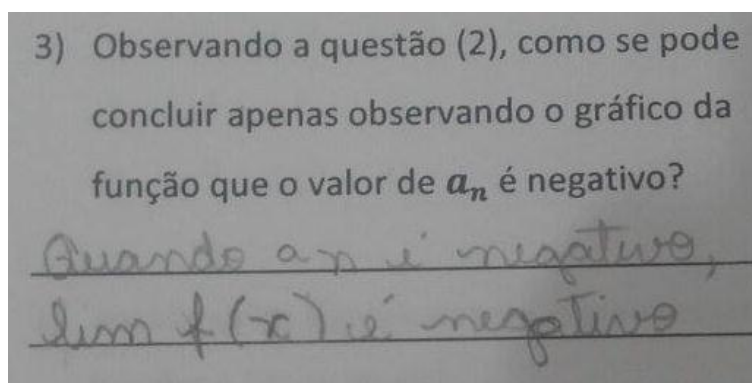 3) Observando a questão (2), como se pode
concluir apenas observando o gráfico da
função que o valor de aₙ é negativo?
Quando an é negativo,
lim f(x) é negativo